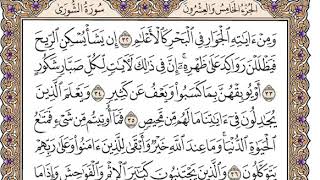 الجزء الخامس والعشرون
سورة الشورى
وَمِنْ ءَايَٰتِهِ ٱلْجَوَارِ فِى ٱلْبَحْرِ كَٱلْأَعْلَٰمِ ٣٢ إِن يَشَأْ يُسْكِنِ ٱلرِّيحَ
فَيَظْلَلْنَ رَوَاكِدَ عَلَىٰ ظَهْرِهِۦٓ إِنَّ فِى ذَٰلِكَ لَءَايَٰتٍ لِّكُلِّ صَبَّارٍ شَكُورٍ
٣٣ أَوْ يُوبِقْهُنَّ بِمَا كَسَبُوا۟ وَيَعْفُ عَن كَثِيرٍ ٣٤ وَيَعْلَمَ ٱلَّذِينَ
يُجَٰدِلُونَ فِىٓ ءَايَٰتِنَا مَا لَهُم مِّن مَّحِيصٍ ٣٥ فَمَآ أُوتِيتُم مِّن شَىْءٍ فَمَتَٰعُ
ٱلْحَيَوٰةِ ٱلدُّنْيَا وَمَا عِندَ ٱللَّهِ خَيْرٌ وَأَبْقَىٰ لِلَّذِينَ ءَامَنُوا۟ وَعَلَىٰ رَبِّهِمْ
يَتَوَكَّلُونَ ٣٦ وَٱلَّذِينَ يَجْتَنِبُونَ كَبَٰٓئِرَ ٱلْإِثْمِ وَٱلْفَوَٰحِشَ وَإِذَا مَا